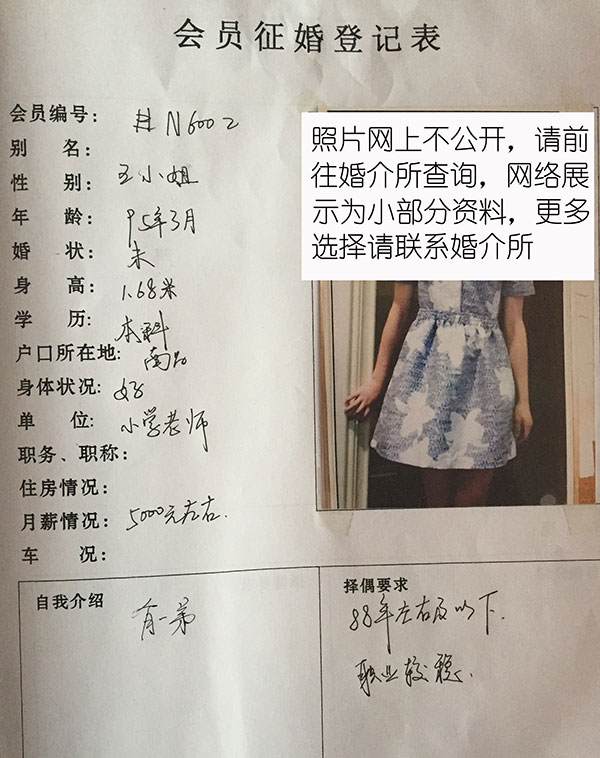 会员征婚登记表
会员编号: # N6002
别 名: 王小姐
性 别:
年 龄: 95年3月
婚 状: 未
身 高: 1.68米
学 历: 本科
户口所在地: 南昌
身体状况: 好
单 位: 小学老师
职务、职称:
住房情况:
月薪情况: 5000元左右.
车 况:
照片网上不公开，请前
往婚介所查询，网络展
示为小部分资料，更多
选择请联系婚介所
自我介绍
有一弟
择偶要求
88年左右及以下.
职业较稳.